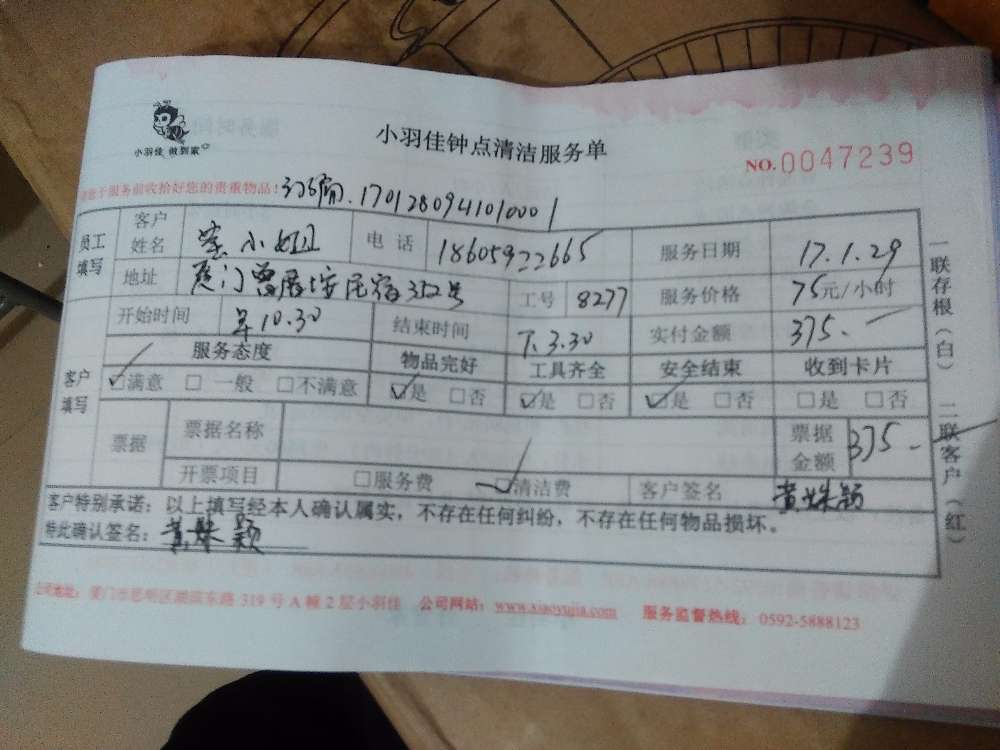 小羽佳 做到家
小羽佳钟点清洁服务单
NO.0047239
服务前收拾好您的贵重物品! 1701280941010001
员工填写 客户姓名 小姐 电话 18605922665 服务日期 17.1.29
地址 厦门 352号 工号 8277 服务价格 75元/小时
开始时间 10.30 结束时间 下3.30 实付金额 375.-
客户填写 服务态度 物品完好 工具齐全 安全结束 收到卡片
☑满意 □一般 □不满意 ☑是 □否 ☑是 □否 ☑是 □否 □是 □否
票据 票据名称 票据金额 375-
开票项目 □服务费 ☑清洁费 客户签名 黄姝颖
客户特别承诺:以上填写经本人确认属实,不存在任何纠纷,不存在任何物品损坏。
特此确认签名:黄姝颖
公司地址:厦门市思明区湖滨东路 319 号 A 幢 2 层小羽佳 公司网站:www.xiaoyujia.com 服务监督热线:0592-5888123
一联存根(白) 二联客户(红)